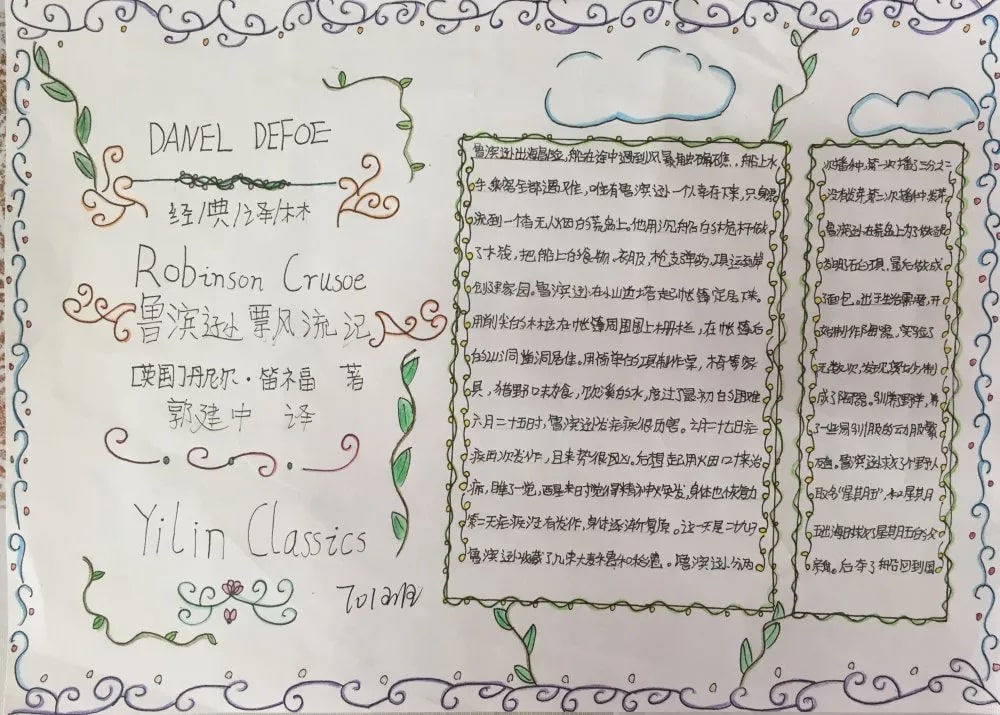 DANEL DEFOE
经/典/译/林
Robinson Crusoe
鲁滨逊票风流记
[英国]丹尼尔·笛福 著
郭建中 译
Yilin Classics
鲁滨逊出海冒险,船在途中遇到风暴触礁,船上水
手乘客全部遇难,唯有鲁滨逊一人幸存下来,只身
流到一个杳无人烟的荒岛上。他用沉船的桅杆做
了木筏,把船上的食物、衣服、枪支弹药、工具运到岸
创建家园。鲁滨逊在小山边搭起帐篷定居下来。
用削尖的木桩在帐篷周围围上栅栏,在帐篷后
的山洞居住。用简单的工具制作桌、椅等家
具,猎野味为食,饮溪的水,度过了最初的困难
六月二十五时,鲁滨逊发疟疾很厉害。六月二十七日疟
疾再次发作,且来势很凶。后想起用烟叶来治
病,睡了一觉,醒来时觉得精神焕发,身体也恢复
第二天疟疾没有发作,身体逐渐复原。这一天是二十九日
鲁滨逊收藏了几束大麦和稻。鲁滨逊分两
次播种,第一次播三分之二
没有放弃第二次播种
鲁滨逊在荒岛上为了做
最后做成
了面包。出于生活需要,开
始制作陶器。实验了
无数次,发现
成了陶器。驯养野羊,养
了一些易驯服的动物繁
鲁滨逊救了个野人
取名"星期五",和星期
五出海时救了星期五的父
亲。后夺了船回到国